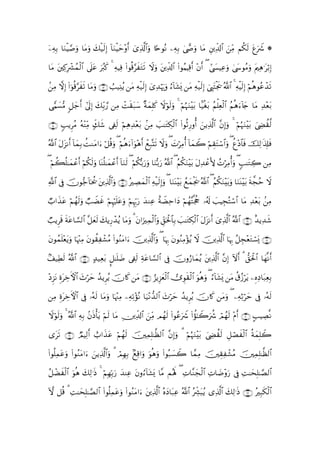 * شَرَعَ لَكُم مِّنَ ٱلدِّينِ مَا وَصَّىٰ بِهِۦ نُوحًا وَٱلَّذِىٓ أَوْحَيْنَآ إِلَيْكَ وَمَا وَصَّيْنَا بِهِۦٓ
إِبْرَٰهِيمَ وَمُوسَىٰ وَعِيسَىٰٓ أَنْ أَقِيمُوا۟ ٱلدِّينَ وَلَا تَتَفَرَّقُوا۟ فِيهِ كَبُرَ عَلَى ٱلْمُشْرِكِينَ مَا
تَدْعُوهُمْ إِلَيْهِ ٱللَّهُ يَجْتَبِىٓ إِلَيْهِ مَن يَشَآءُ وَيَهْدِىٓ إِلَيْهِ مَن يُنِيبُ وَمَا تَفَرَّقُوٓا۟ إِلَّا مِنۢ
بَعْدِ مَا جَآءَهُمُ ٱلْعِلْمُ بَغْيًۢا بَيْنَهُمْ وَلَوْلَا كَلِمَةٌ سَبَقَتْ مِن رَّبِّكَ إِلَىٰٓ أَجَلٍ مُّسَمًّى
لَّقُضِىَ بَيْنَهُمْ وَإِنَّ ٱلَّذِينَ أُورِثُوا۟ ٱلْكِتَٰبَ مِنۢ بَعْدِهِمْ لَفِى شَكٍّ مِّنْهُ مُرِيبٍ
فَلِذَٰلِكَ فَٱدْعُ وَٱسْتَقِمْ كَمَآ أُمِرْتَ وَلَا تَتَّبِعْ أَهْوَآءَهُمْ وَقُلْ ءَامَنتُ بِمَآ أَنزَلَ ٱللَّهُ
مِن كِتَٰبٍ وَأُمِرْتُ لِأَعْدِلَ بَيْنَكُمُ ٱللَّهُ رَبُّنَا وَرَبُّكُمْ لَنَآ أَعْمَٰلُنَا وَلَكُمْ أَعْمَٰلُكُمْ
لَا حُجَّةَ بَيْنَنَا وَبَيْنَكُمُ ٱللَّهُ يَجْمَعُ بَيْنَنَا وَإِلَيْهِ ٱلْمَصِيرُ وَٱلَّذِينَ يُحَآجُّونَ فِى ٱللَّهِ
مِنۢ بَعْدِ مَا ٱسْتُجِيبَ لَهُۥ حُجَّتُهُمْ دَاحِضَةٌ عِندَ رَبِّهِمْ وَعَلَيْهِمْ غَضَبٌ وَلَهُمْ عَذَابٌ
شَدِيدٌ ٱللَّهُ ٱلَّذِىٓ أَنزَلَ ٱلْكِتَٰبَ بِٱلْحَقِّ وَٱلْمِيزَانَ وَمَا يُدْرِيكَ لَعَلَّ ٱلسَّاعَةَ قَرِيبٌ
يَسْتَعْجِلُ بِهَا ٱلَّذِينَ لَا يُؤْمِنُونَ بِهَا وَٱلَّذِينَ ءَامَنُوا۟ مُشْفِقُونَ مِنْهَا وَيَعْلَمُونَ
أَنَّهَا ٱلْحَقُّ أَلَآ إِنَّ ٱلَّذِينَ يُمَارُونَ فِى ٱلسَّاعَةِ لَفِى ضَلَٰلٍۭ بَعِيدٍ ٱللَّهُ لَطِيفٌۢ
بِعِبَادِهِۦ يَرْزُقُ مَن يَشَآءُ وَهُوَ ٱلْقَوِىُّ ٱلْعَزِيزُ مَن كَانَ يُرِيدُ حَرْثَ ٱلْءَاخِرَةِ نَزِدْ
لَهُۥ فِى حَرْثِهِۦ وَمَن كَانَ يُرِيدُ حَرْثَ ٱلدُّنْيَا نُؤْتِهِۦ مِنْهَا وَمَا لَهُۥ فِى ٱلْءَاخِرَةِ مِن
نَّصِيبٍ أَمْ لَهُمْ شُرَكَٰٓؤُا۟ شَرَعُوا۟ لَهُم مِّنَ ٱلدِّينِ مَا لَمْ يَأْذَنۢ بِهِ ٱللَّهُ وَلَوْلَا
كَلِمَةُ ٱلْفَصْلِ لَقُضِىَ بَيْنَهُمْ وَإِنَّ ٱلظَّٰلِمِينَ لَهُمْ عَذَابٌ أَلِيمٌ تَرَى
ٱلظَّٰلِمِينَ مُشْفِقِينَ مِمَّا كَسَبُوا۟ وَهُوَ وَاقِعٌۢ بِهِمْ وَٱلَّذِينَ ءَامَنُوا۟ وَعَمِلُوا۟
ٱلصَّٰلِحَٰتِ فِى رَوْضَاتِ ٱلْجَنَّاتِ لَهُم مَّا يَشَآءُونَ عِندَ رَبِّهِمْ ذَٰلِكَ هُوَ ٱلْفَضْلُ
ٱلْكَبِيرُ ذَٰلِكَ ٱلَّذِى يُبَشِّرُ ٱللَّهُ عِبَادَهُ ٱلَّذِينَ ءَامَنُوا۟ وَعَمِلُوا۟ ٱلصَّٰلِحَٰتِ قُل لَّآ